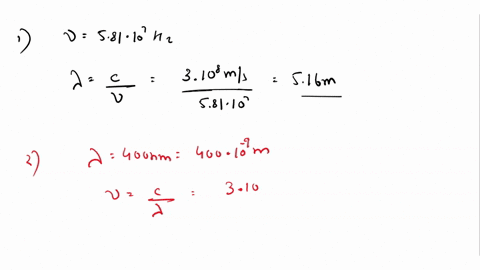 1) ν = 5.81·10⁷ Hz
λ = c/ν = 3·10⁸ m/s / 5.81·10⁷ = 5.16m
2) λ = 400nm = 400·10⁻⁹ m
ν = c/λ = 3·10